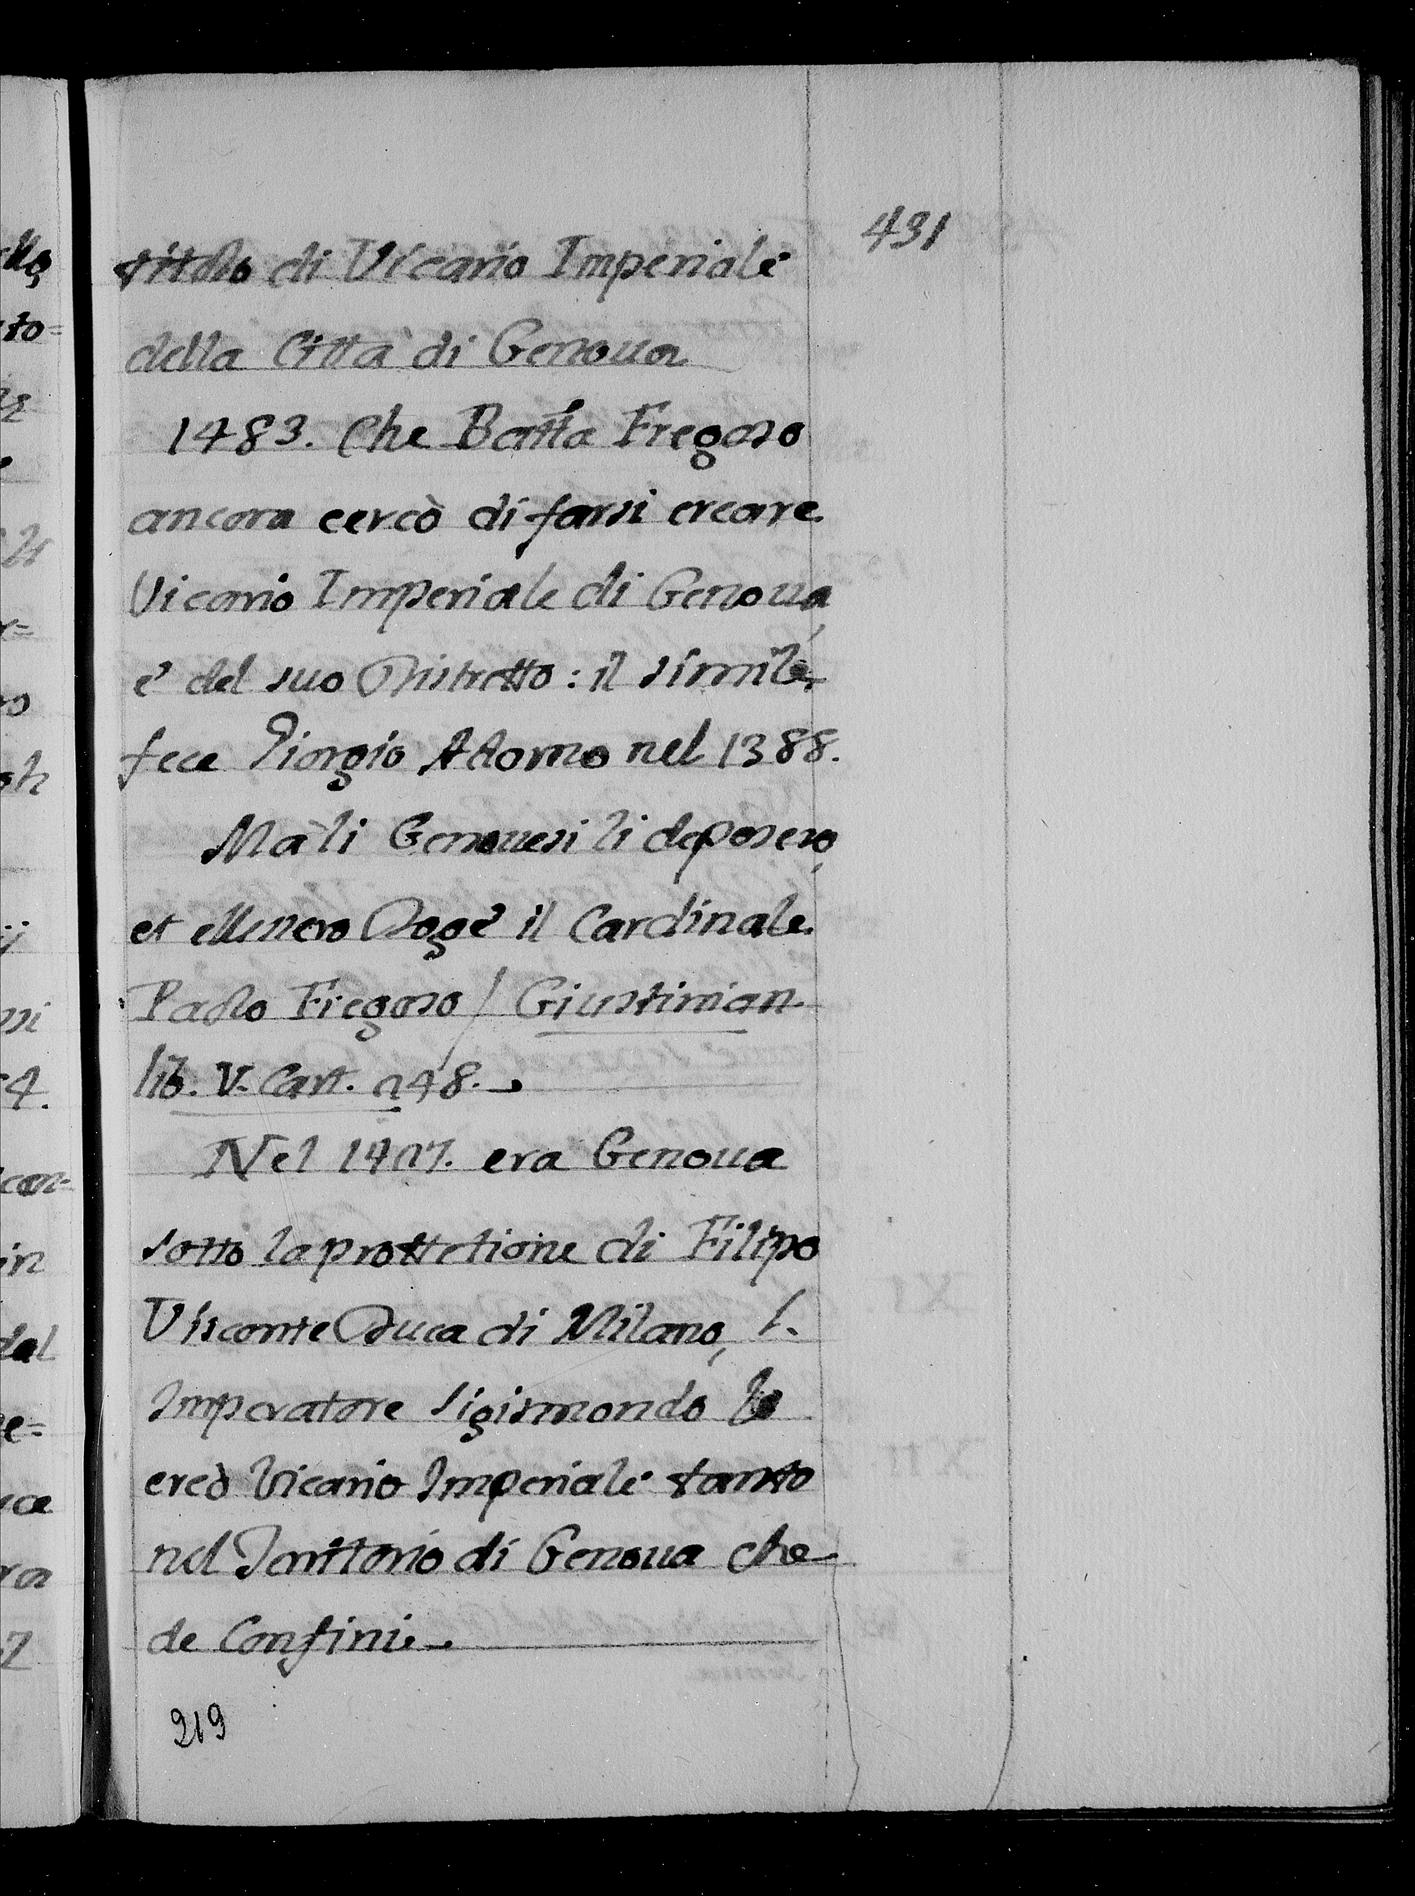 431
titolo di Vicario Imperiale
della Città di Genoua
1483. Che Batta Fregoso
ancora cercò di farsi creare
Vicario Imperiale di Genoua,
e' del suo Distretto: il simile
fece Giorgio Adorno nel 1388.
Mà li Genouesi li deposero,
et ellesero Doge il Cardinale
Paolo Fregoso / Giustinian
lib. V. Cart. 248.
Nel 14 era Genoua
sotto la prottetione di Filipo
Visconte Duca di Milano, l.
Imperatore Sigismondo lo
creò Vicario Imperiale tanto
nel Territorio di Genoua che
de Confini.
219